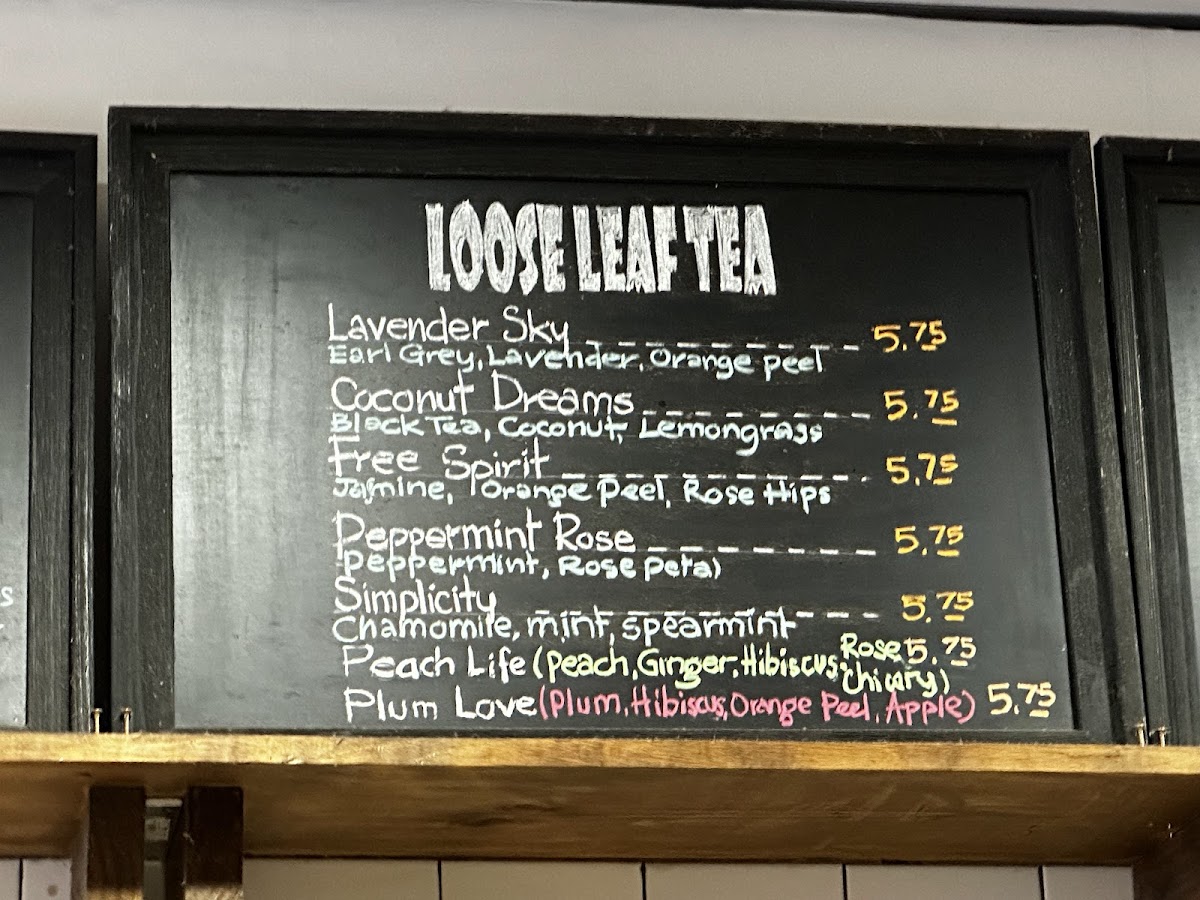 LOOSE LEAF TEA
Lavender Sky 5.75
Earl Grey, Lavender, Orange peel
Coconut Dreams 5.75
Black Tea, Coconut, Lemongrass
Free Spirit 5.75
Jasmine, Orange Peel, Rose Hips
Peppermint Rose 5.75
Peppermint, Rose petal
Simplicity 5.75
Chamomile, mint, spearmint
Peach Life (Peach, Ginger, Hibiscus, Rose, 5.75
Chicary)
Plum Love (Plum, Hibiscus, Orange Peel, Apple) 5.75